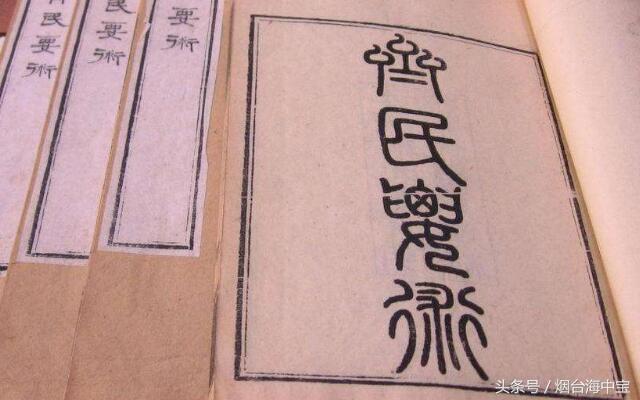 齊民要術
要術
民要術
民要術
头条号 / 烟台海中宝